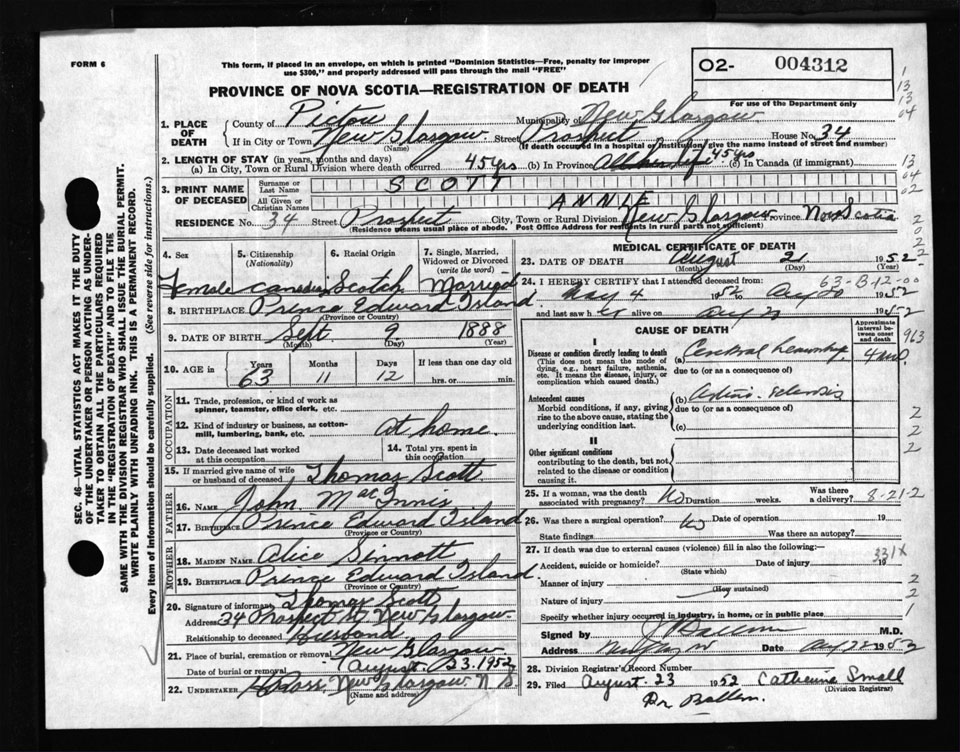 FORM 6
This form, if placed in an envelope, on which is printed "Dominion Statistics—Free, penalty for improper
use $300," and properly addressed will pass through the mail "FREE"
PROVINCE OF NOVA SCOTIA—REGISTRATION OF DEATH
O2- 004312
For use of the Department only
1. PLACE OF DEATH
County of Pictou Municipality of New Glasgow
If in City or Town New Glasgow Street Prospect House No. 34
(Name) (If death occurred in a hospital or institution, give the name instead of street and number)
2. LENGTH OF STAY (in years, months and days)
(a) In City, Town or Rural Division where death occurred 45 yrs (b) In Province 45 yrs (c) In Canada (if immigrant)
3. PRINT NAME OF DECEASED
Surname or Last Name SCOTT
All Given or Christian Names ANNIE
RESIDENCE No. 34 Street Prospect City, Town or Rural Division New Glasgow Province Nova Scotia
(Residence means usual place of abode. Post Office Address for residents in rural parts not sufficient)
4. Sex Female
5. Citizenship (Nationality) Canadian
6. Racial Origin Scotch
7. Single, Married, Widowed or Divorced (write the word) Married
8. BIRTHPLACE Prince Edward Island
(Province or Country)
9. DATE OF BIRTH Sept. 9 1888
(Month) (Day) (Year)
10. AGE in Years 63 Months 11 Days 12 If less than one day old hrs. or min.
OCCUPATION
11. Trade, profession, or kind of work as
spinner, teamster, office clerk, etc.
12. Kind of industry or business, as cotton-
mill, lumbering, bank, etc. at home
13. Date deceased last worked at this occupation
14. Total yrs. spent in this occupation
15. If married give name of wife or husband of deceased Thomas Scott
FATHER
16. NAME John MacInnis
17. BIRTHPLACE Prince Edward Island
(Province or Country)
MOTHER
18. MAIDEN NAME Alice Sinnott
19. BIRTHPLACE Prince Edward Island
(Province or Country)
20. Signature of informant Thomas Scott
Address 34 Prospect St, New Glasgow
Relationship to deceased Husband
21. Place of burial, cremation or removal New Glasgow
Date of burial or removal August 23. 1952
22. UNDERTAKER New Glasgow. N. S.
(Name and address)
MEDICAL CERTIFICATE OF DEATH
23. DATE OF DEATH August 21 1952
(Month) (Day) (Year)
24. I HEREBY CERTIFY that I attended deceased from: 63-B-12-00
May 4 1952 to Aug 20 1952
and last saw her alive on Aug 20 1952
CAUSE OF DEATH
Approximate interval between onset and death
I
Disease or condition directly leading to death
(This does not mean the mode of
dying, e.g., heart failure, asthenia,
etc. It means the disease, injury, or
complication which caused death.)
(a) Cerebral
due to (or as a consequence of)
Antecedent causes
Morbid conditions, if any, giving
rise to the above cause, stating the
underlying condition last.
(b)
due to (or as a consequence of)
(c)
II
Other significant conditions
contributing to the death, but not
related to the disease or condition
causing it.
25. If a woman, was the death associated with pregnancy? No Duration weeks. Was there a delivery? 8-21-2
26. Was there a surgical operation? No Date of operation 19
State findings Was there an autopsy?
27. If death was due to external causes (violence) fill in also the following:— 331X
Accident, suicide or homicide? Date of injury 19
(State which)
Manner of injury
(How sustained)
Nature of injury
Specify whether injury occurred in industry, in home, or in public place
Signed by M.D.
Address Date Aug 22 1952
28. Division Registrar's Record Number
29. Filed August 23 1952 Catherine Small
(Division Registrar)
Dr Ballem.
SEC. 46—VITAL STATISTICS ACT MAKES IT THE DUTY
OF THE UNDERTAKER OR PERSON ACTING AS UNDER-
TAKER TO OBTAIN ALL THE PARTICULARS REQUIRED
IN THE "REGISTRATION OF DEATH" AND TO FILE THE
SAME WITH THE DIVISION REGISTRAR WHO SHALL ISSUE THE BURIAL PERMIT.
WRITE PLAINLY WITH UNFADING INK. THIS IS A PERMANENT RECORD.
Every item of Information should be carefully supplied. (See reverse side for instructions.)